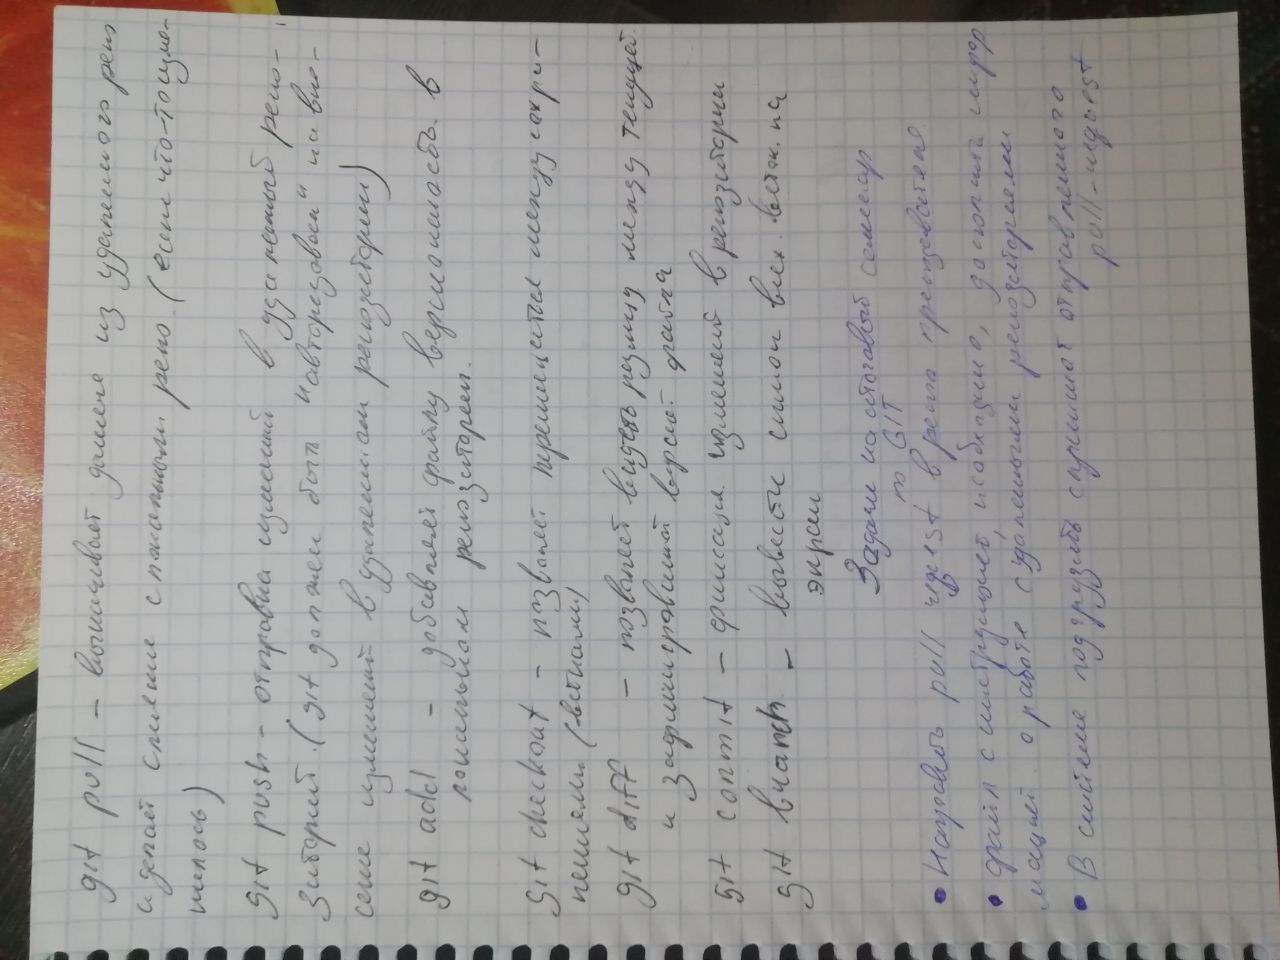 git pull – выкачивает данные из удаленного репо
и делает слияние с локальным репо. (если что-то изме-
нилось)
git push – отправка измений в удаленный репо-
зиторий. (git должен быть "авторизован" на вне-
сение измений в удаленном репозитории)
git add – добавляет файлу версионность в
локальном репозитории.
git checkout – позволяет перемещаться между сохра-
нениями (ветками)
git diff – позволяет видеть разницу между текущей
и зафиксированной версией файла
git commit – фиксация изменений в репозитории
git branch – вывести список всех веток на
экран
Задачи на итоговый семинар
по GIT
• Направить pull request в репо преподавателя
• файл с инструкцией необходимо, дополнить инфор
мацией о работе с удаленными репозиториями
• В системе подгрузить скриншот отправленного
pull-request